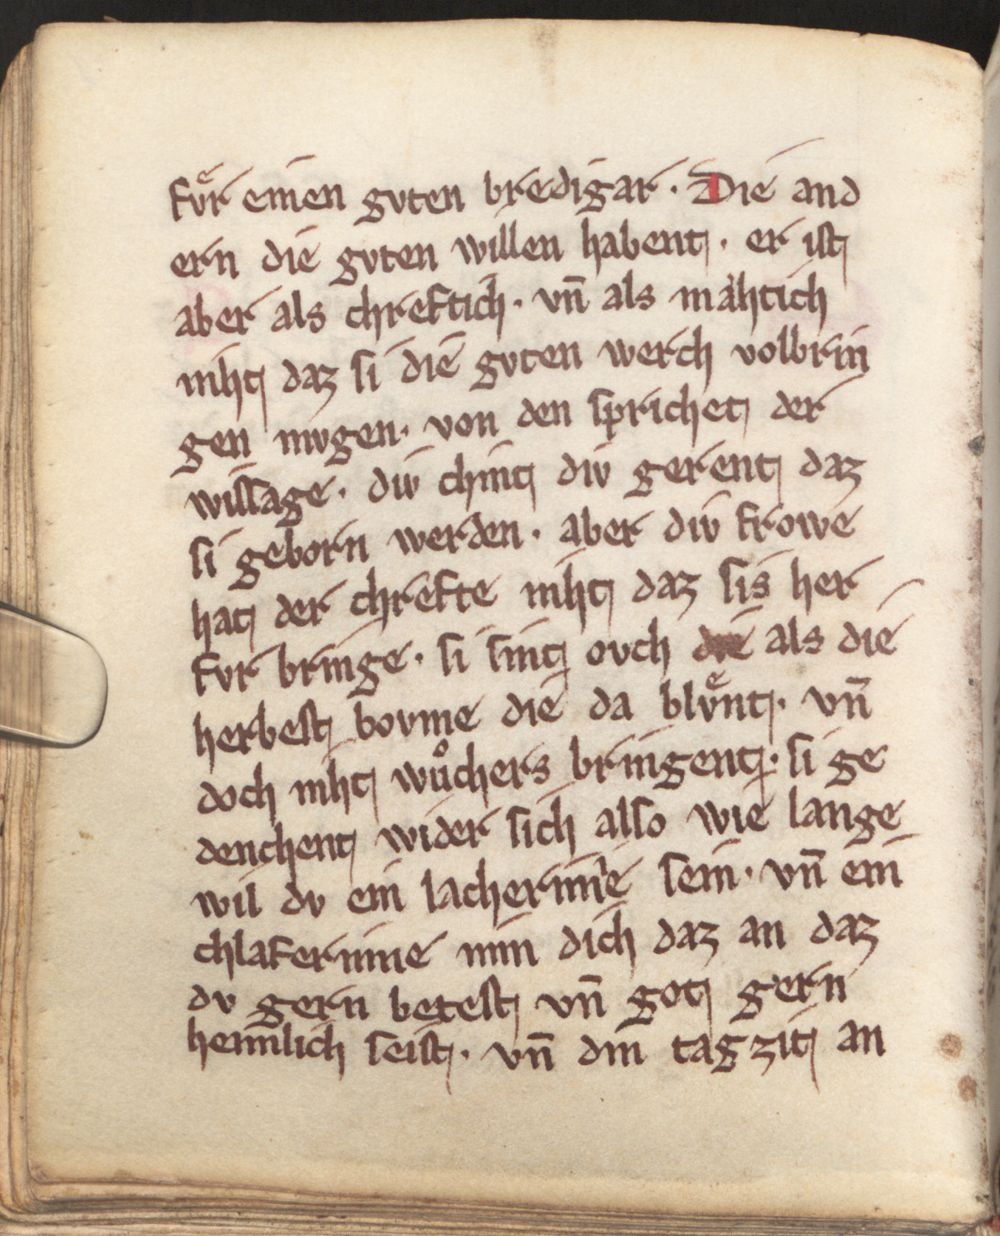 fvͤr einen gvten bredigar · Die and
ern die gvten willen habent · er ist
aber als chreftich · vn̄ als mähtich
niht daz si die gvten werch volbrin
gen mvgen · von den sprichet der
wissage · div chint div gerent daz
si geborn werden · aber div frowe
hat der chrefte niht daz sis her
fvr bringe · si sint ovch als die
herbest bovme die da blvͤnt · vn̄
doch niht wuͦchers bringent · si ge
denchent wider sich also wie lange
wil dv ein lacherinne sein · vn̄ ein
chlaferinne nim dich daz an daz
dv gern betest vn̄ got gern
heimlich seist · vn̄ din tagzit an